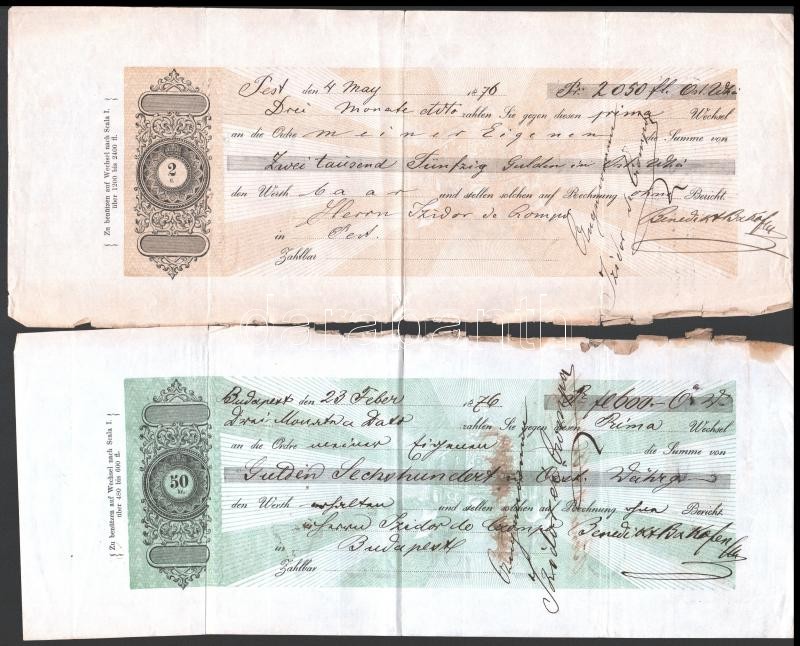 { Zu benützen auf Wechsel nach Scala I.
über 1200 bis 2400 fl. }
2
fl.
Pest den 4 May 1876 Pr. 2050 fl. Öst. Whr
Drei Monate dato zahlen Sie gegen diesen prima Wechsel
an die Ordre meiner Eigenen die Summe von
Zwei tausend Fünfzig Gulden in
den Werth baar und stellen solchen auf Rechnung ohne Bericht.
Herrn Izidor de Compo Benedikt
in Pest.
Zahlbar
Angenommen
Izidor de Compo
darabanth
{ Zu benützen auf Wechsel nach Scala I.
über 480 bis 600 fl. }
50
kr.
Budapest den 23 Feber 1876 Pr. fl 600.- Ö. W.
Drei Monate a Dato zahlen Sie gegen diesen Prima Wechsel
an die Ordre meiner Eigenen die Summe von
Gulden Sechshundert in Oest. Währg
den Werth erhalten und stellen solchen auf Rechnung ohne Bericht.
Herrn Izidor de Compo Benedikt
in Budapest
Zahlbar
Angenommen
Izidor de Compo